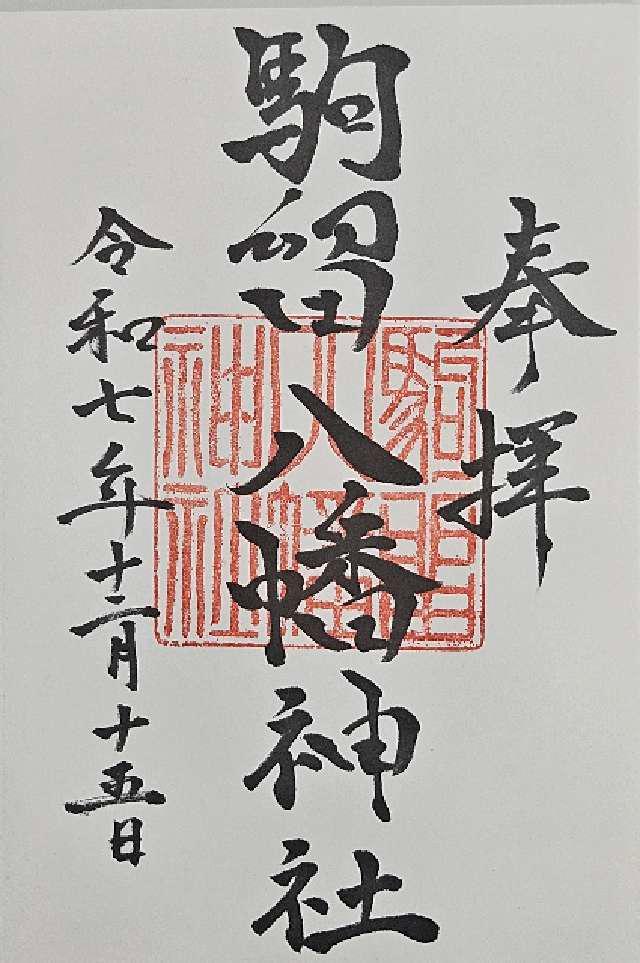 奉拝
駒留八幡神社
駒留
八幡
神社
令和七年十二月十五日